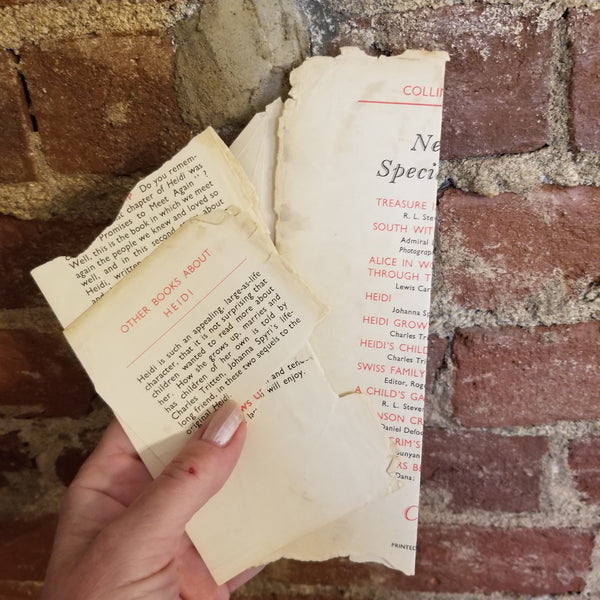 Do you remem-
chapter of Heidi was
Promises to Meet Again" ?
Well, this is the book in which we meet
again the people we knew and loved so
well, and in this second about
Heidi, written
OTHER BOOKS ABOUT
HEIDI
Heidi is such an appealing, large-as-life
character, that it is not surprising that
children wanted to read more about
her. How she grows up, marries and
has children of her own is told by
Charles Tritten, Johanna Spyri's life-
long friend, in these two sequels to the
original Heidi.
WS UP and
will enjoy.
COLLIN
Ne
Speci
TREASURE I
R. L. Stev
SOUTH WIT
Admiral
Photograph
ALICE IN W
THROUGH T
Lewis Car
HEIDI
Johanna Sp
HEIDI GROW
Charles Tri
HEIDI'S CHILD
Charles Trit
SWISS FAMILY
Editor, Rog
A CHILD'S GA
R. L. Steven
NSON CR
Daniel Defoe
RIM'S
unyan
RS B
Dana;
C
PRINTED